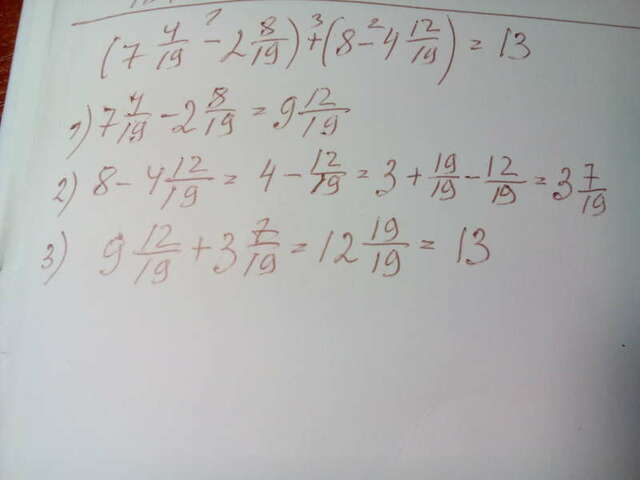 (7 4/19 - 2 8/19) + (8 - 4 12/19) = 13
1) 7 4/19 - 2 8/19 = 9 12/19
2) 8 - 4 12/19 = 4 - 12/19 = 3 + 19/19 - 12/19 = 3 7/19
3) 9 12/19 + 3 7/19 = 12 19/19 = 13